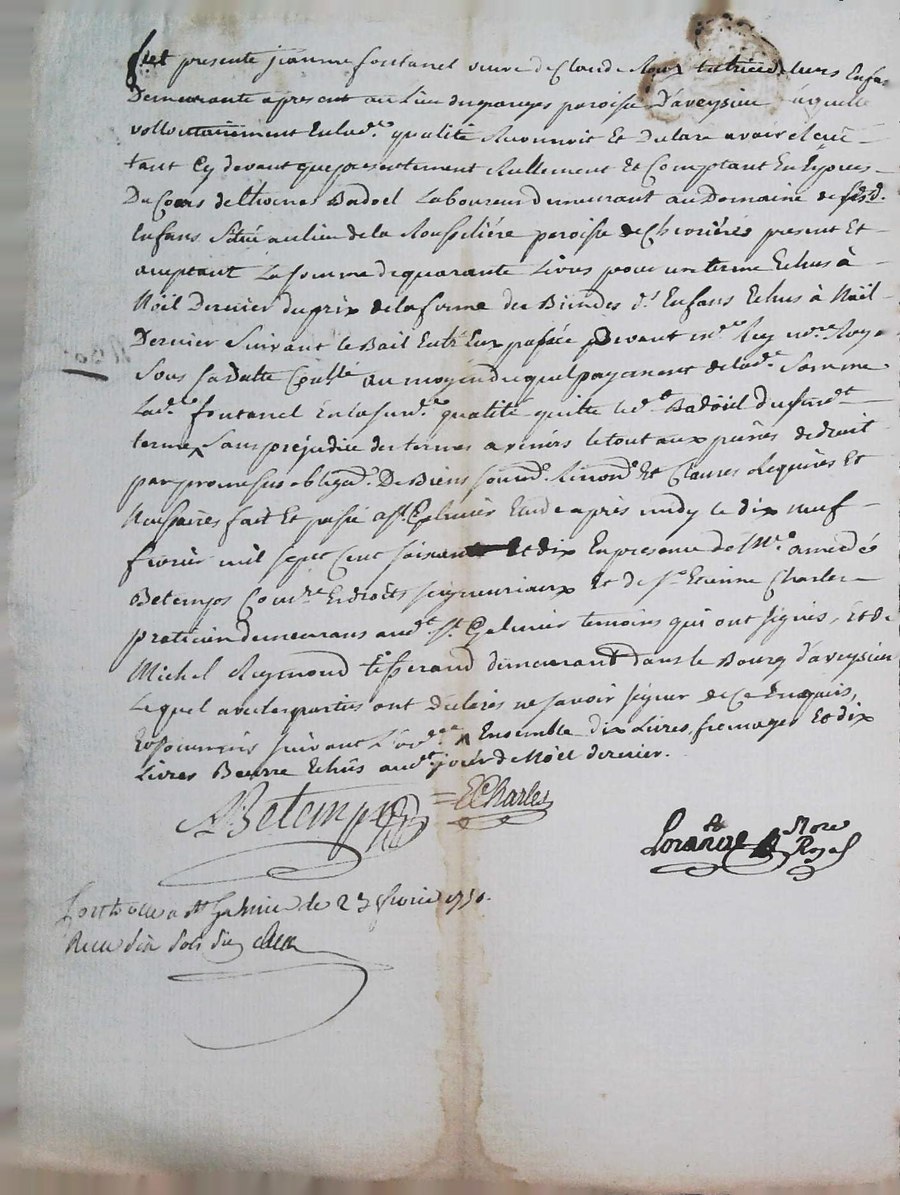 fut presente jeanne fontanel veuve de Claude tutrice de leurs Enfa
Demeurante apresent au Lieu des granges paroisse D'aveysieu laquelle
vollontairement En lad.e qualité Reconnoit Et Declare avoir Reçeu
tant Cy devant que presentement Reellement Et Comptant En Espèces
Du Cours de thomas Badoel Laboureur demeurant au Domaine de sesd.
Enfans Situé au lieu de la paroisse de Chevrières present Et
acceptant La somme de quarante Livres pour un terme Echus à
Noël Dernier du prix de la ferme des Biens des d.t Enfans Echus à Noël
Dernier Suivant le Bail Entr'Eux passée pdevant m.re Rey no.re Roya
Sous sa Datte au moyen duquel payement de lad.e Somme
Lad.e fontanel En la susd.e qualité quitte led.t Badoël du susd.t
terme ^ Sans préjudice des termes avenirs le tout aux peines de droit
par promesses obligaõn De Biens soumõn Renonõn Et Clauses Requises Et
Necessaires fait Et passé a St Galmier Etude après midy le dix neuf
fevrier mil sept Cent soixante Et dix En presence de Mre amedée
Betemps Com.re En droits seigneuriaux Et de Sr Etienne Charles
praticien demeurans aud.t St Galmier temoins qui ont signés, Et de
Michel Reymond tisserand demeurant dans le Bourg d'aveysieu
Lequel avec les parties ont declarés ne savoir signer de Ce Enquis,
Et sommés suivant L'ord.ce ^ Ensemble dix Livres fromages Et dix
Livres Beurre Echûs aud.t jour de Noël dernier.
ABetemps = ECharles
Lorance Nore
Royal
Contrôlé a St Galmier le 23 fevrier 1770.
Recu dix sols six den